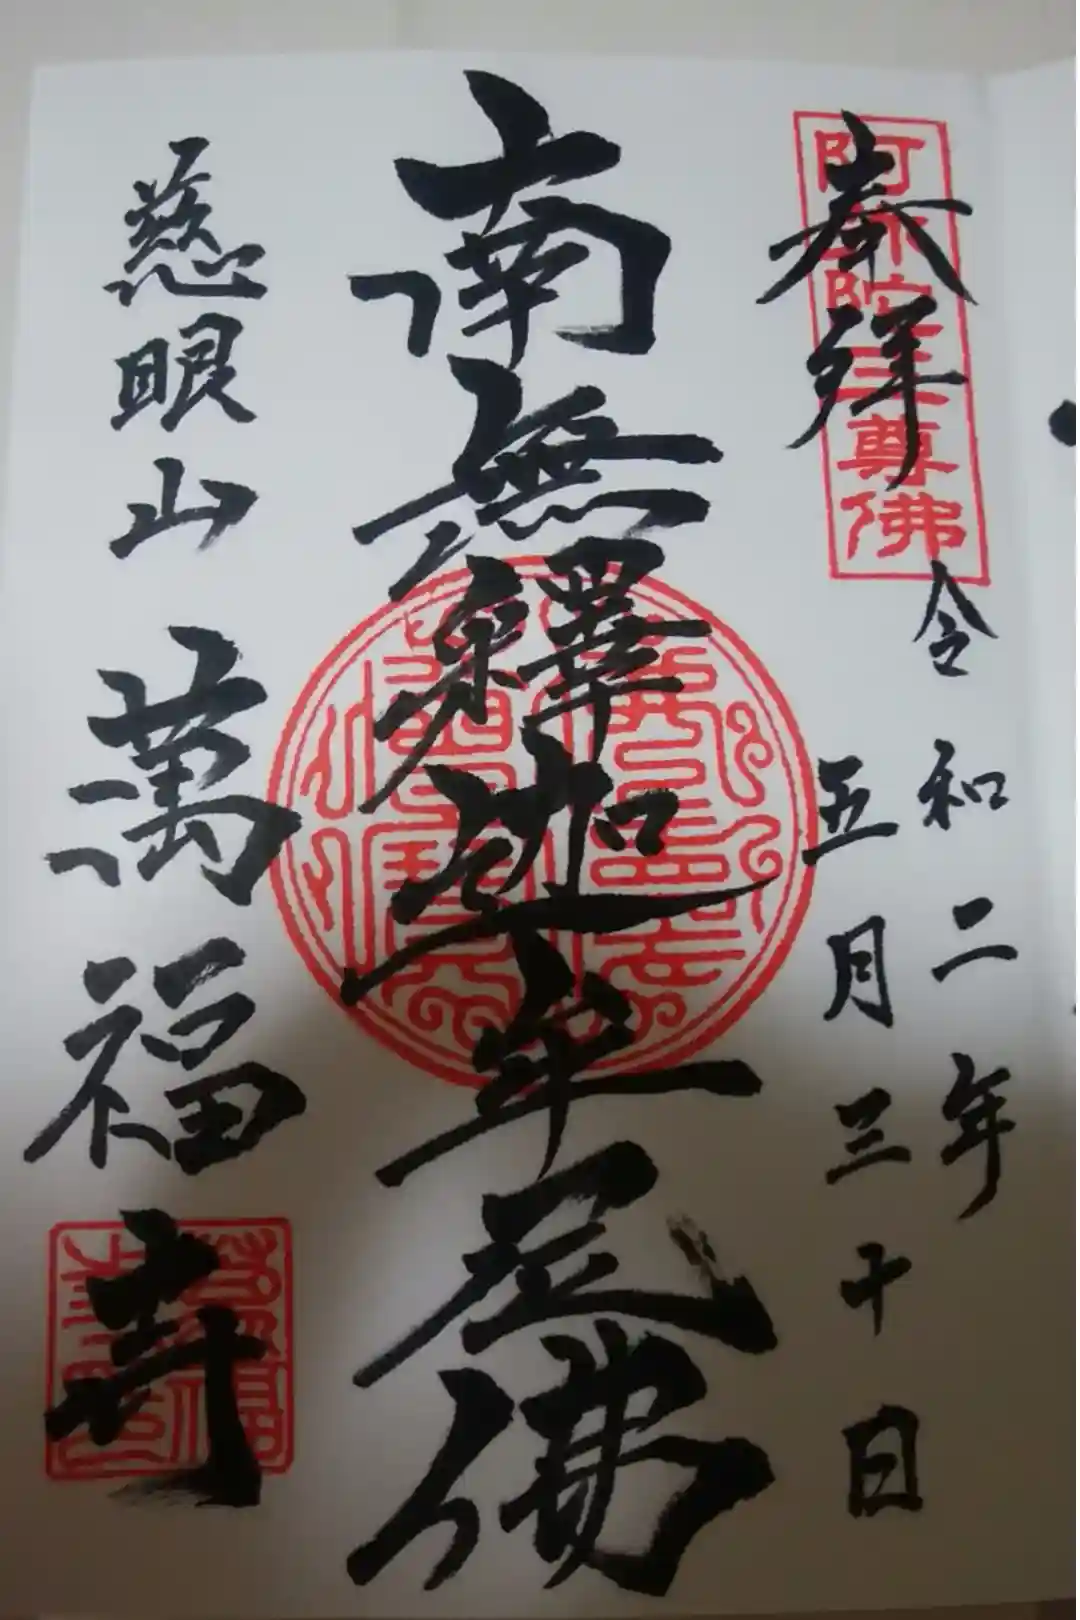 奉拝
阿弥陀三尊佛
令和二年
五月三十日
南無釋迦牟尼佛
慈眼山 萬福寺